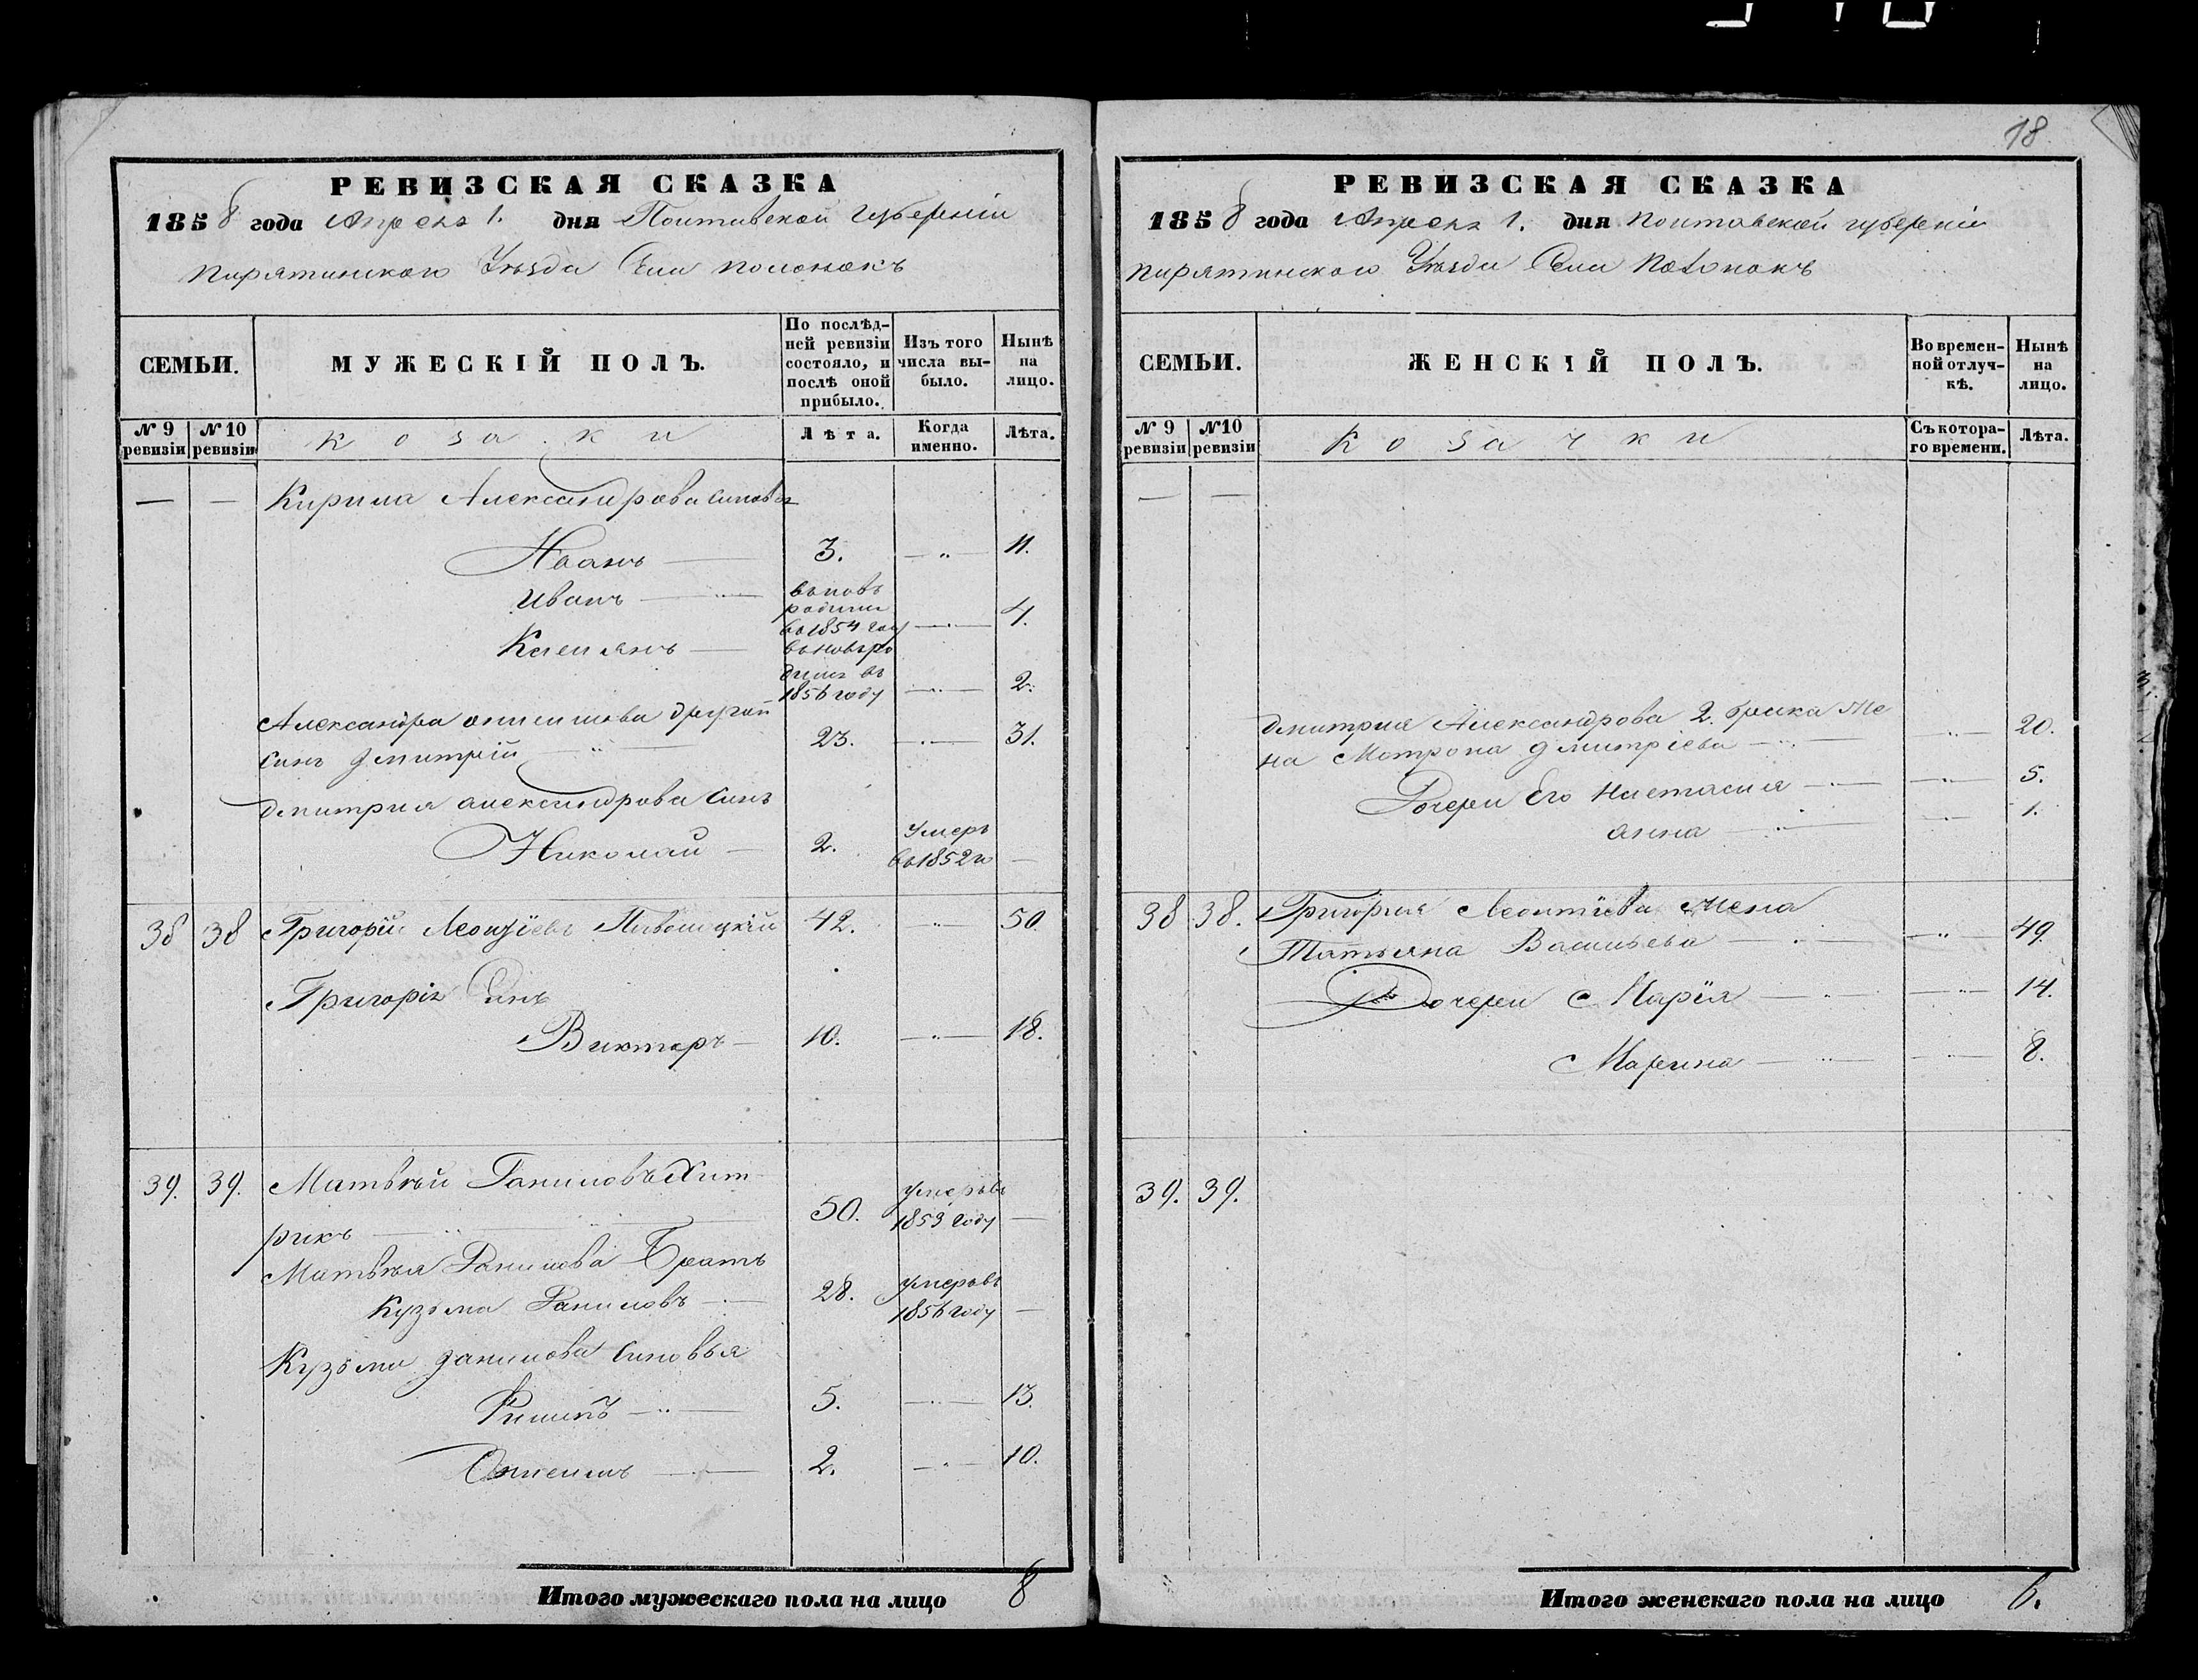 18
РЕВИЗСКАЯ СКАЗКА
1858 года Апреля 1. дня Полтавской Губерніи
Пирятинского Уѣзда Села Полонокъ
СЕМЬИ.
МУЖЕСКІЙ ПОЛЪ.
По послѣд-
ней ревизіи
состояло, и
послѣ оной
прибыло.
Изъ того
числа вы-
было.
Нынѣ
на
лицо.
№ 9
ревизіи
№ 10
ревизіи
Козаки
Лѣта.
Когда
именно.
Лѣта.
— — Кирила Александрова синовья
Иванъ 3. — 11.
Иванъ вновь
родился
въ 1854 году — 4.
Клемянъ вновь ро
дился въ
1856 году — 2.
Александра другой
синъ Дмитрій 23. — 31.
Дмитрия Александрова Синъ
Николай 2. Умеръ
въ 1852 го —
38 38 Григорій Леонтіевъ 42. — 50.
Григорія Синъ
Викторъ 10. — 18.
39. 39. Матвѣй Даниловъ Хит
рикъ 50. умеръ въ
1853 году —
Матвѣя Данилова Братъ
Кузьма Даниловъ 28. умеръ въ
1856 году —
Кузьмы Данилова Синовья
Филипъ 5. — 13.
2. — 10.
Итого мужескаго пола на лицо 8
РЕВИЗСКАЯ СКАЗКА
1858 года Апреля 1. дня Полтавской губерніи
Пирятинского Уѣзда Села Полонокъ
СЕМЬИ.
ЖЕНСКІЙ ПОЛЪ.
Во времен-
ной отлуч-
кѣ.
Нынѣ
на
лицо.
№ 9
ревизіи
№ 10
ревизіи
Козачки
Съ котора-
го времени.
Лѣта.
— —
Дмитрия Александрова 2. брака Же
на Мотрона Дмитріева — 20.
Дочери Его Настасия — 5.
Анна — 1.
38 38. Григория Леонтіева Жена
Татьяна Васильева — 49.
Дочери Марія — 14.
Марина — 8.
39. 39.
Итого женскаго пола на лицо 6.